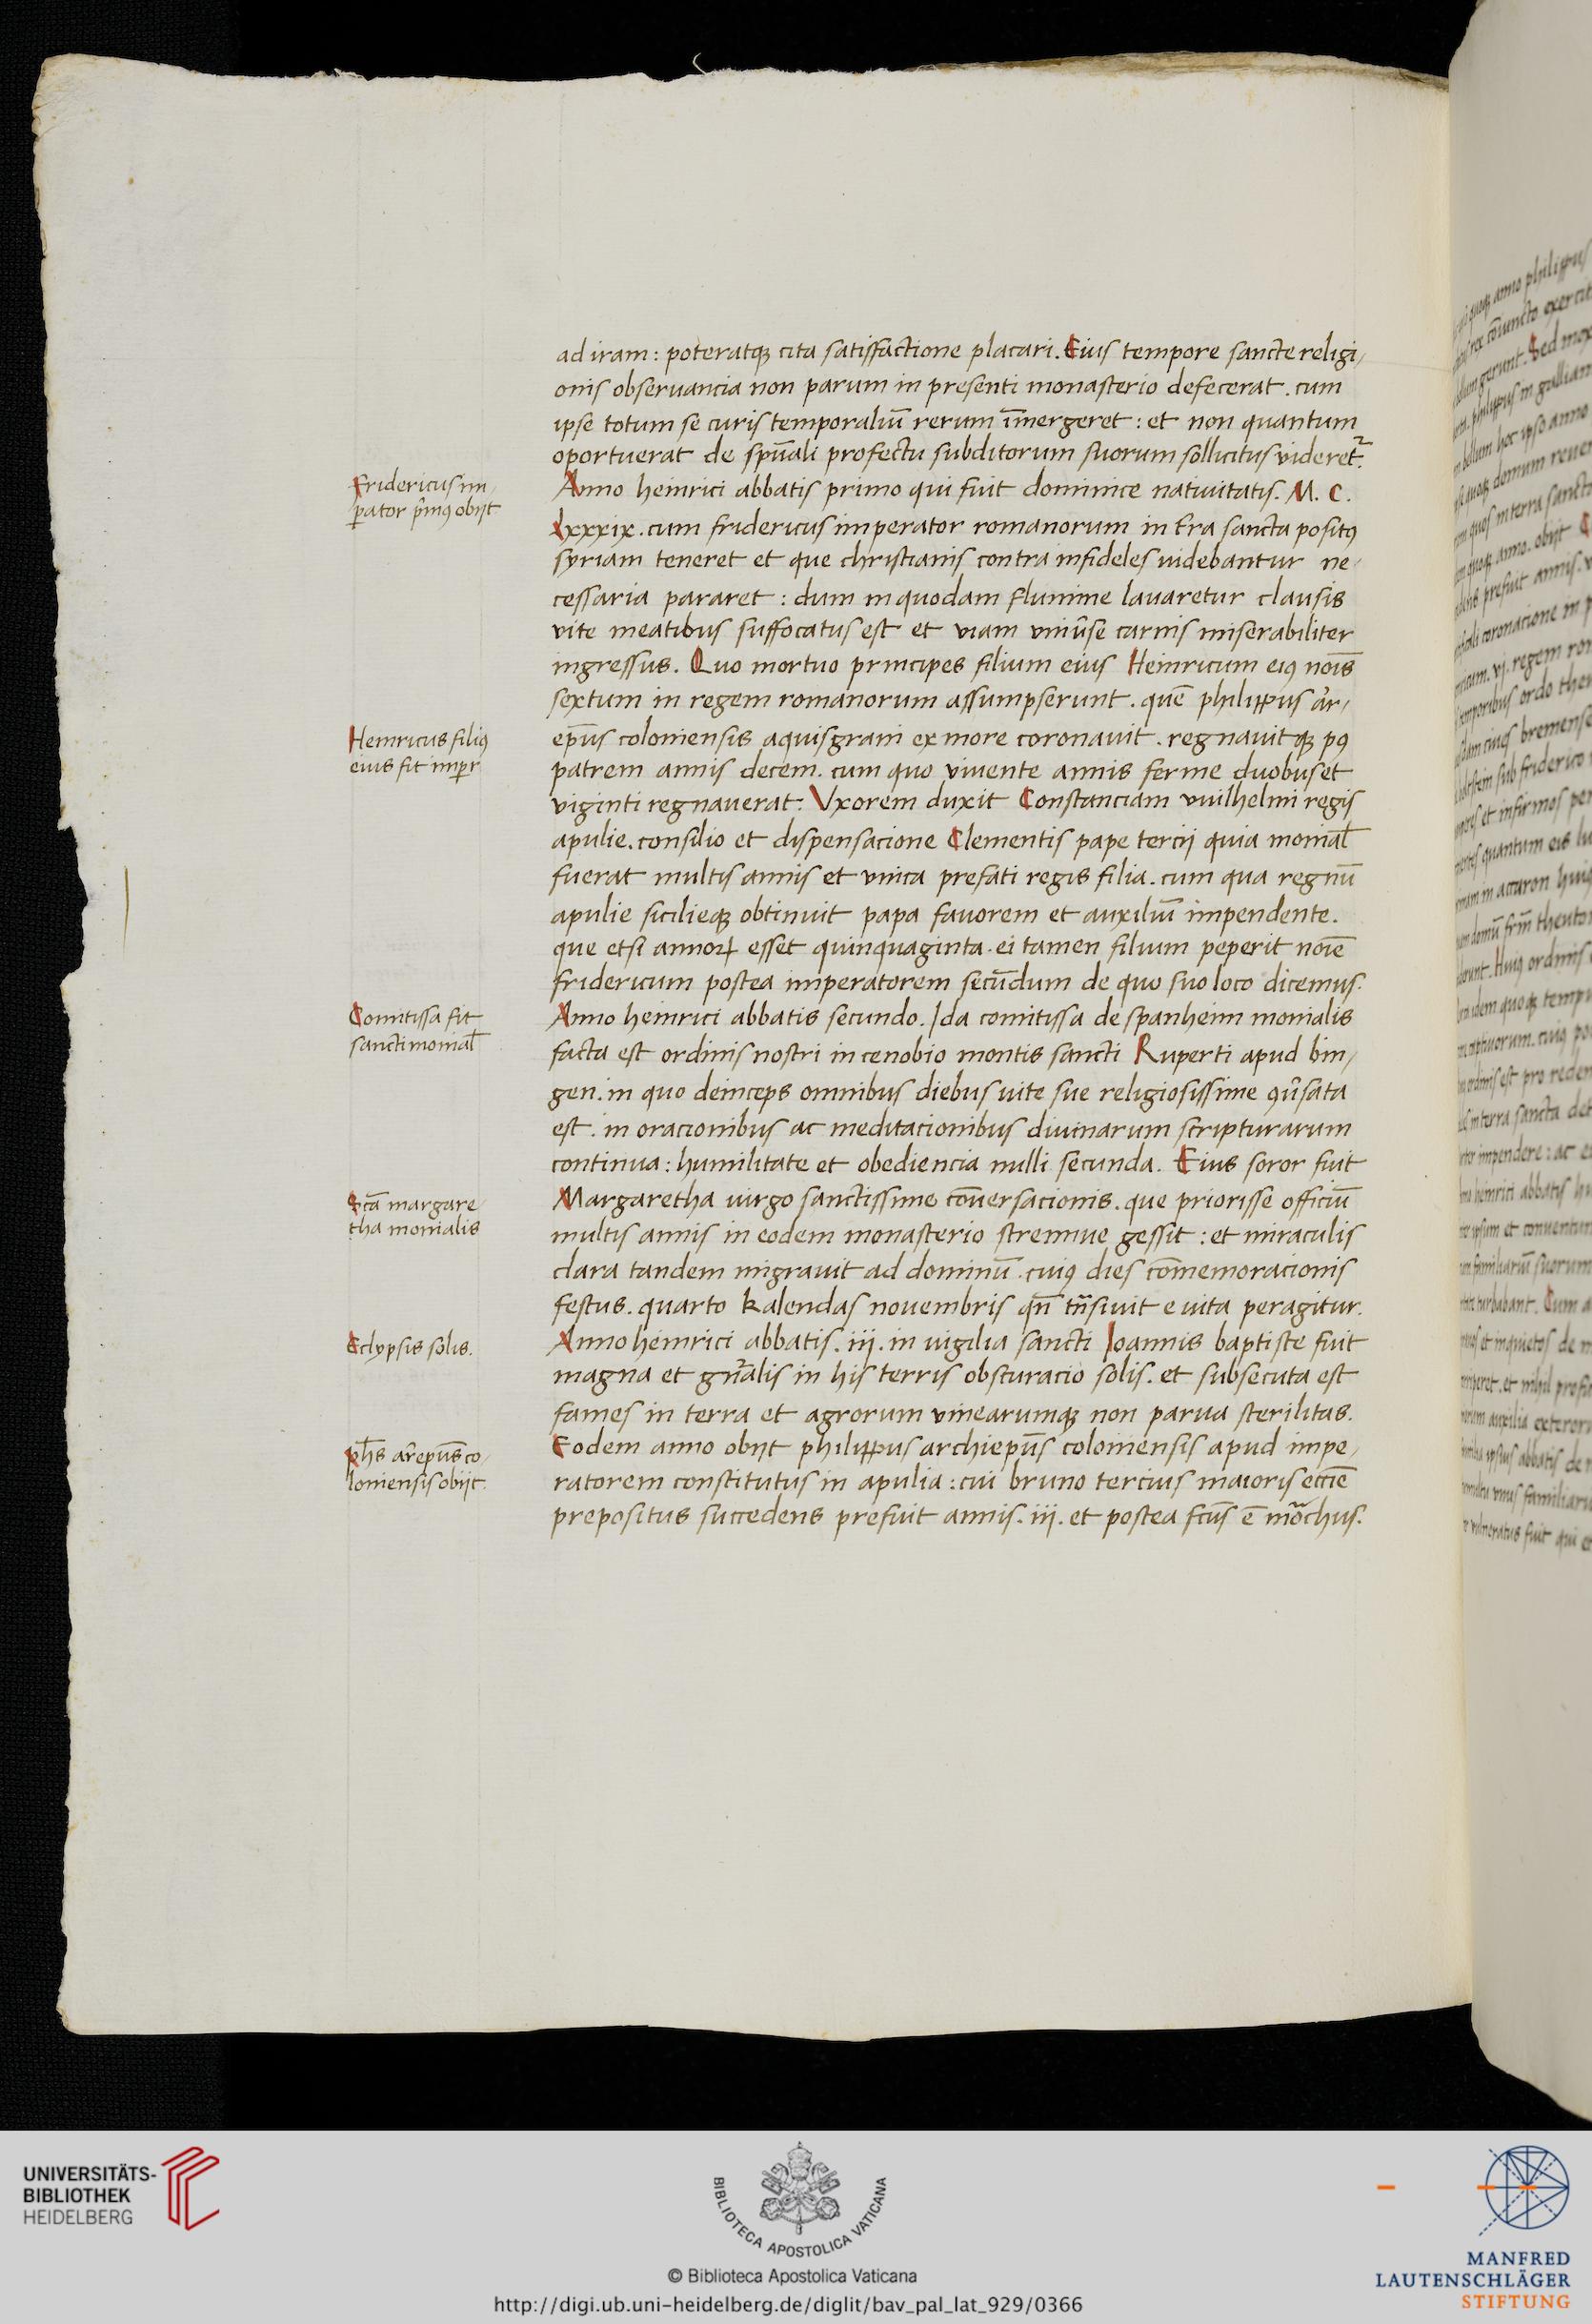 ad iram : poteratqȝ cita satisfactione placari. Eius tempore sancte religi,
onis obseruancia non parum in presenti monasterio defecerat. cum
ipse totum se curis temporaliū rerum īmergeret : et non quantum
oportuerat de spūali profectu subditorum suorum sollicitus videret᷑.
Fridericus im,
ꝑator p̄mꝰ obijt
Anno heinrici abbatis primo qui fuit dominice natiuitatis. M. C.
lxxxix. cum fridericus imperator romanorum in t̄ra sancta positꝰ
syriam teneret et que christianis contra infideles videbantur ne,
cessaria pararet : dum in quodam flumine lauaretur clausis
vite meatibus suffocatus est et viam vniūse carnis miserabiliter
ingressus. Quo mortuo principes filium eius Heinricum eiꝰ nōis
sextum in regem romanorum assumpserunt. quē philippus ar̄,
Heinricus filiꝰ
eius fit impr̄
ep̄us coloniensis aquisgrani ex more coronauit. regnauitqȝ pꝰ
patrem annis decem. cum quo viuente annis ferme duobus et
viginti regnauerat. Vxorem duxit Constanciam vuilhelmi regis
apulie. consilio et dispensacione Clementis pape tercij quia monial̄
fuerat multis annis et vnica prefati regis filia. cum qua regnū
apulie sicilieqȝ obtinuit papa fauorem et auxiliū impendente.
que etsi annoꝝ esset quinquaginta. ei tamen filium peperit noīe
fridericum postea imperatorem secūdum de quo suo loco dicemus.
Comitissa fit
sanctimonial̄
Anno heinrici abbatis secundo. Ida comitissa de spanheim monialis
facta est ordinis nostri in cenobio montis sancti Ruperti apud bin,
gen. in quo deinceps omnibus diebus vite sue religiosissime ꝯūsata
est. in oracionibus ac meditacionibus diuinarum scripturarum
continua : humilitate et obediencia nulli secunda. Eius soror fuit
Sc̄a margare
tha monialis
Margaretha virgo sanctissime cōuersacionis. que priorisse officiū
multis annis in eodem monasterio strennue gessit : et miraculis
clara tandem migrauit ad dominū. cuiꝰ dies cōmemoracionis
festus. quarto kalendas novembris qn̄ tn̄siuit e vita peragitur.
Eclypsis solis.
Anno heinrici abbatis. iij. in vigilia sancti Ioannis baptiste fuit
magna et gn̄alis in his terris obscuracio solis. et subsecuta est
fames in terra et agrorum vinearumqȝ non parua sterilitas.
ph̄s ar̄epūs co,
loniensis obijt.
Eodem anno obijt philippus archiepūs coloniensis apud impe,
ratorem constitutus in apulia : cui bruno tercius maioris ecc̄ie
prepositus succedens prefuit annis. iij. et postea fc̄us ē mōchus.
UNIVERSITÄTS-
BIBLIOTHEK
HEIDELBERG
BIBLIOTECA APOSTOLICA VATICANA
© Biblioteca Apostolica Vaticana
http://digi.ub.uni-heidelberg.de/diglit/bav_pal_lat_929/0366
MANFRED
LAUTENSCHLÄGER
STIFTUNG